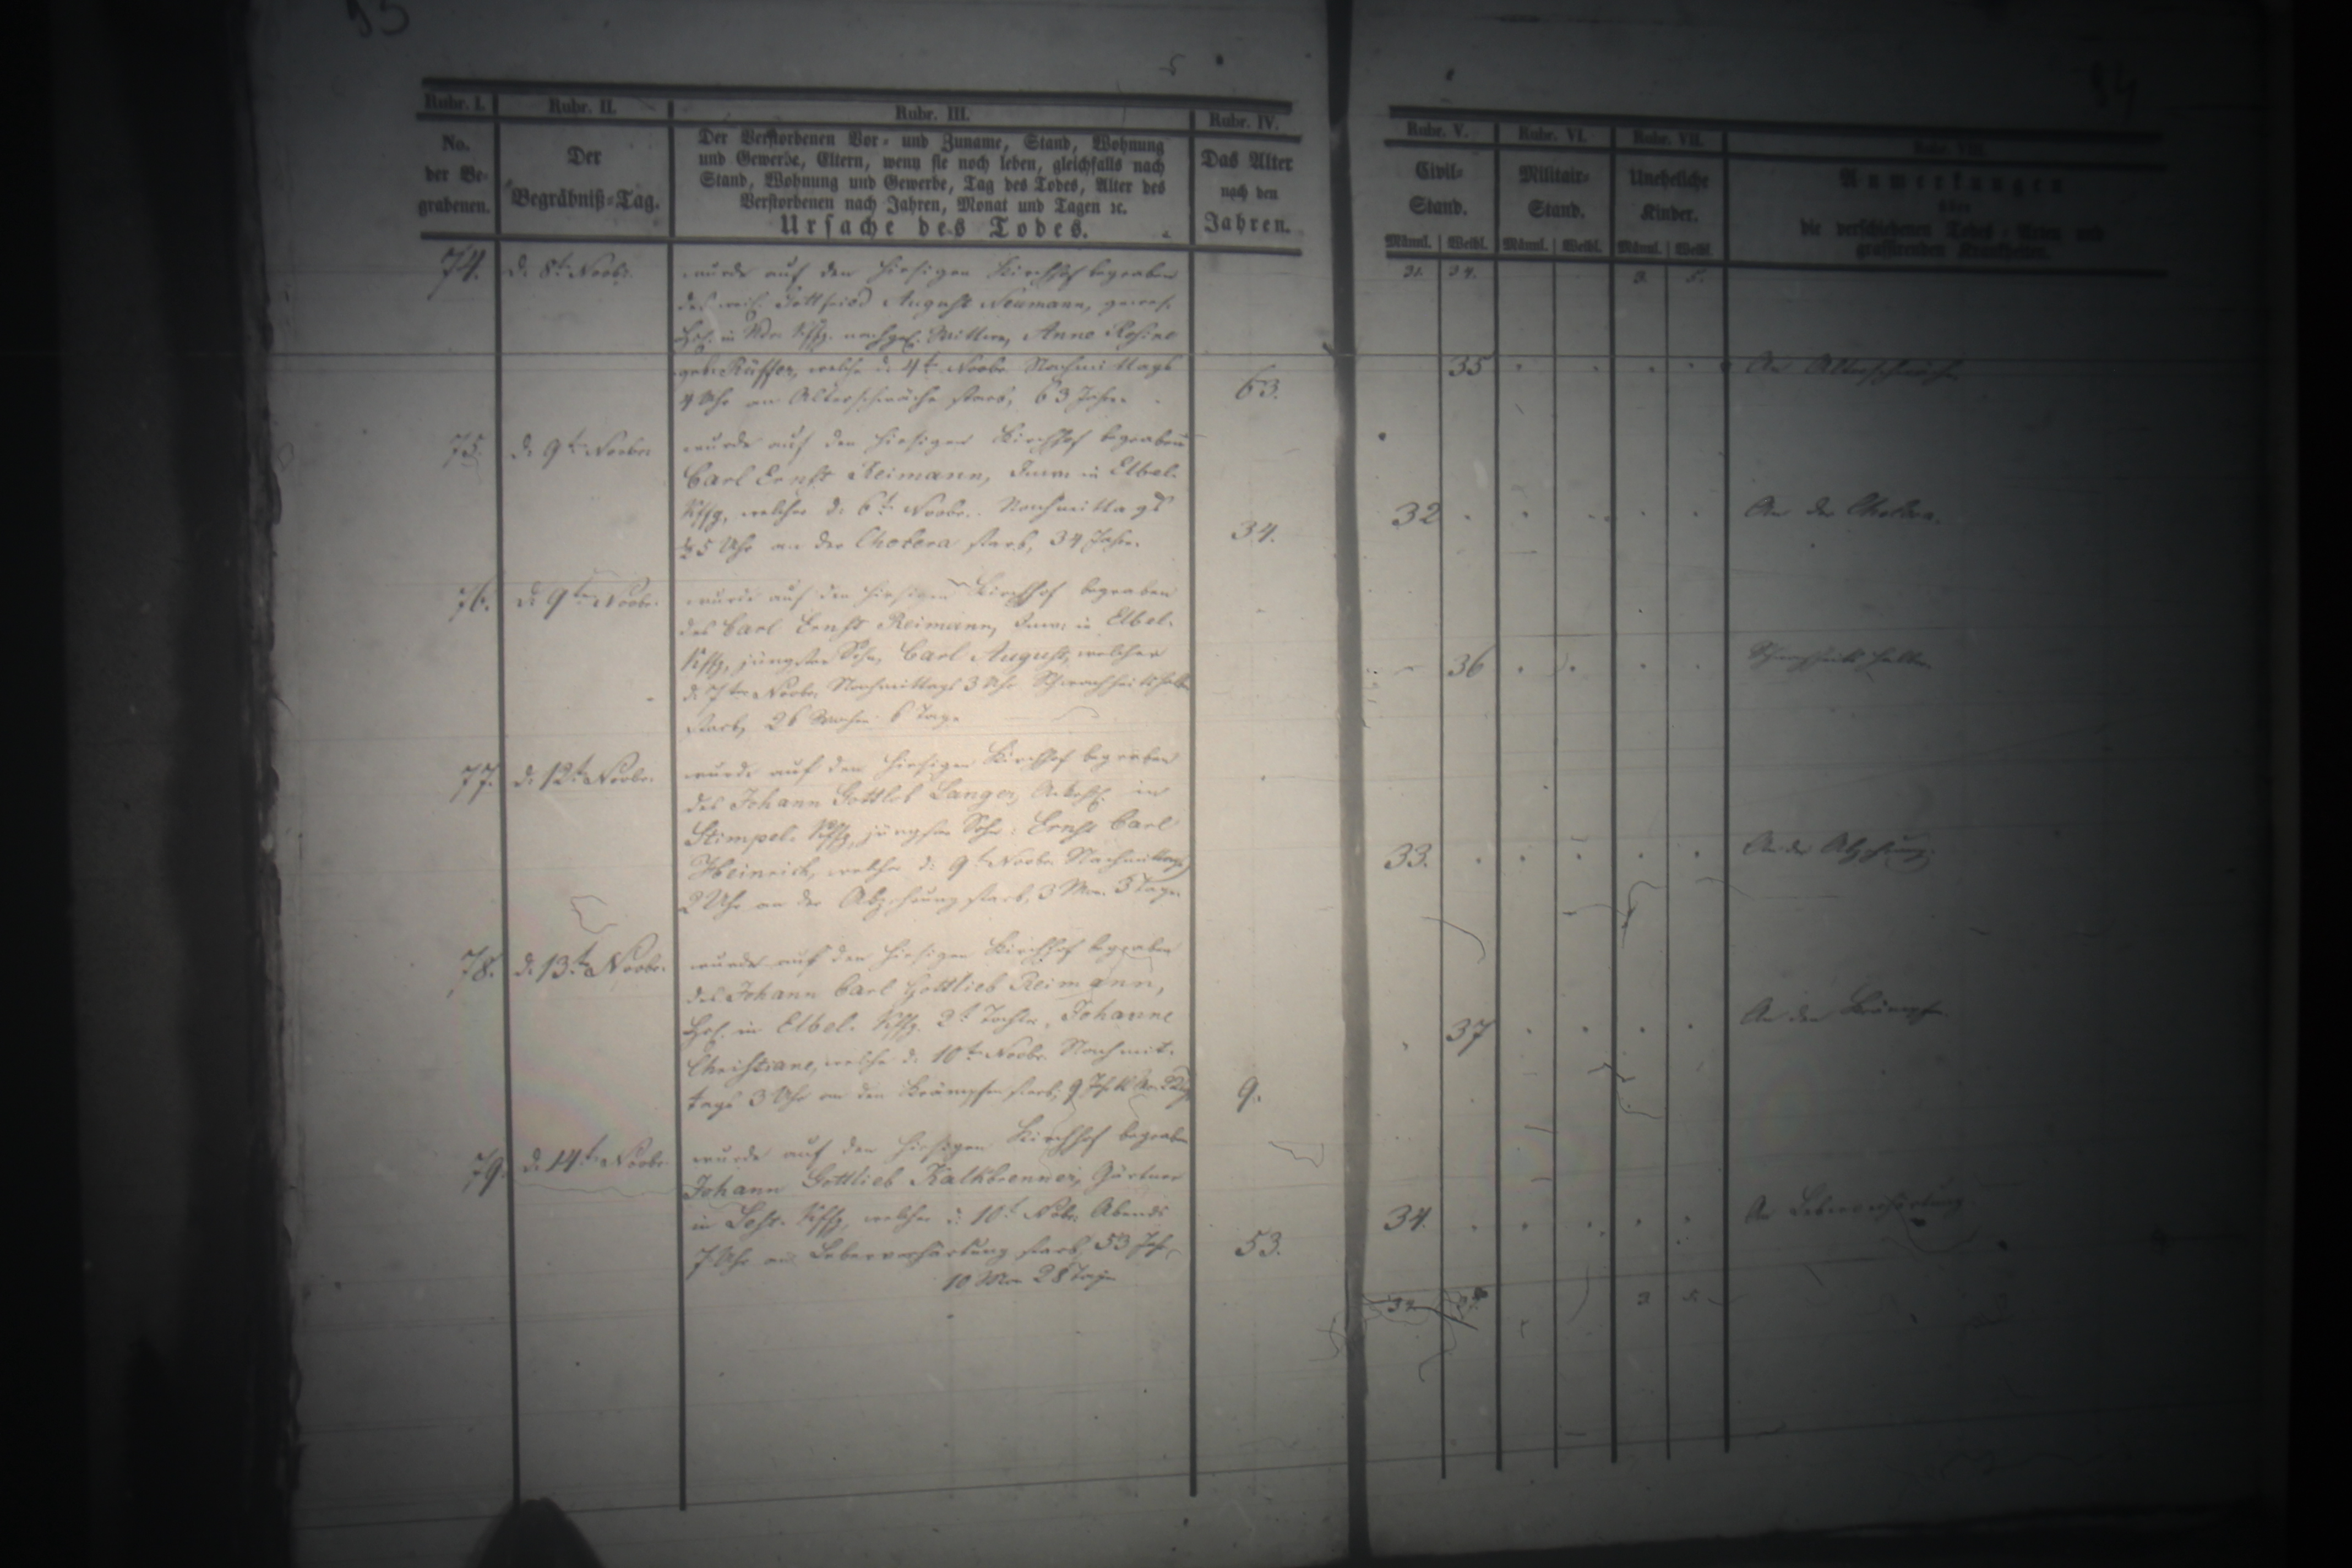 Rubr. I. Rubr. II. Rubr. III. Rubr. IV. Rubr. V. Rubr. VI. Rubr. VII. Rubr. VIII.
No.
der Be-
grabenen.
Der
Begräbniß-Tag.
Der Verstorbenen Vor- und Zuname, Stand, Wohnung
und Gewerbe, Eltern, wenn sie noch leben, gleichfalls nach
Stand, Wohnung und Gewerbe, Tag des Todes, Alter des
Verstorbenen nach Jahren, Monat und Tagen ꝛc.
Ursache des Todes.
Das Alter
nach den
Jahren.
Civil-
Stand.
Männl. Weibl.
Militair-
Stand.
Männl. Weibl.
Uneheliche
Kinder.
Männl. Weibl.
Anmerkungen
über
die verschiedenen Todes-Arten und
grassirenden Krankheiten.
31. 34. 3. 5.
74. d. 8t. Novbr. wurde auf den hiesigen Kirchhof begraben
des weil. Gottfried August Neumann, gewes.
in Ndr. nachgel. Wittwe, Anne Rosine
geb. Küffer, welche d. 4t. Novbr. Nachmittags
4 Uhr an Altersschwäche starb, 63 Jahr. 63. 35 An Altersschwäche
75. d. 9t. Novbr. wurde auf den hiesigen Kirchhof begraben
Carl Ernst Reimann, Inw. in Elbel.
welcher d. 6t. Novbr. Nachmittags
5 Uhr an der Cholera starb, 34 Jahr. 34. 32 An der Cholera.
76. d. 9ten Novbr. wurde auf den hiesigen Kirchhof begraben
des Carl Ernst Reimann, Inw. in Elbel.
jüngster Sohn, Carl August, welcher
d. 7ten Novbr. Nachmittags 3 Uhr Schwachheitshalber
starb, 26 Wochen 6 Tage 36 Schwachheits halber
77. d. 12t. Novbr. wurde auf den hiesigen Kirchhof begraben
des Johann Gottlob Langer, in
Stimpel. jüngster Sohn: Ernst Carl
Heinrich, welcher d. 9t. Novbr. Nachmittags
2 Uhr an der Abzehrung starb, 3 Mon. 3 Tage 33. An der Abzehrung.
78. d. 13t. Novbr. wurde auf den hiesigen Kirchhof begraben
des Johann Carl Gottlieb Reimann,
in Elbel. 2t. Tochter, Johanne
Christiane, welche d. 10t. Novbr. Nachmit-
tags 3 Uhr an den Krämpfen starb, 9 9. 37 An den Krämpfen
79. d. 14t. Novbr. wurde auf den hiesigen Kirchhof begraben
Johann Gottlieb Kalkbrenner, Gärtner
in welcher d. 10t. Nobr. Abends
7 Uhr an Leberverhärtung starb, 53 Jahr 53. 34. An Leberverhärtung
10 Mon 28 Tage